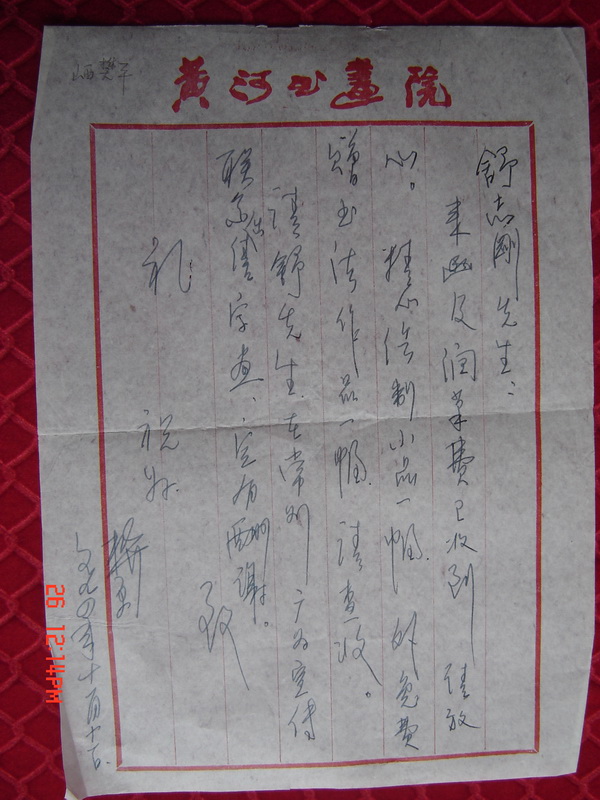 黄河书画院
舒志刚先生：
来函及润笔费已收到 请放
心。精心绘制小品一幅. 外免费
赠书法作品一幅. 请查收。
请舒先生在常州广为宣传
联系出售字画、定有酬谢。
致
礼
祝好.
九四年十一月十六日
26 12:14PM